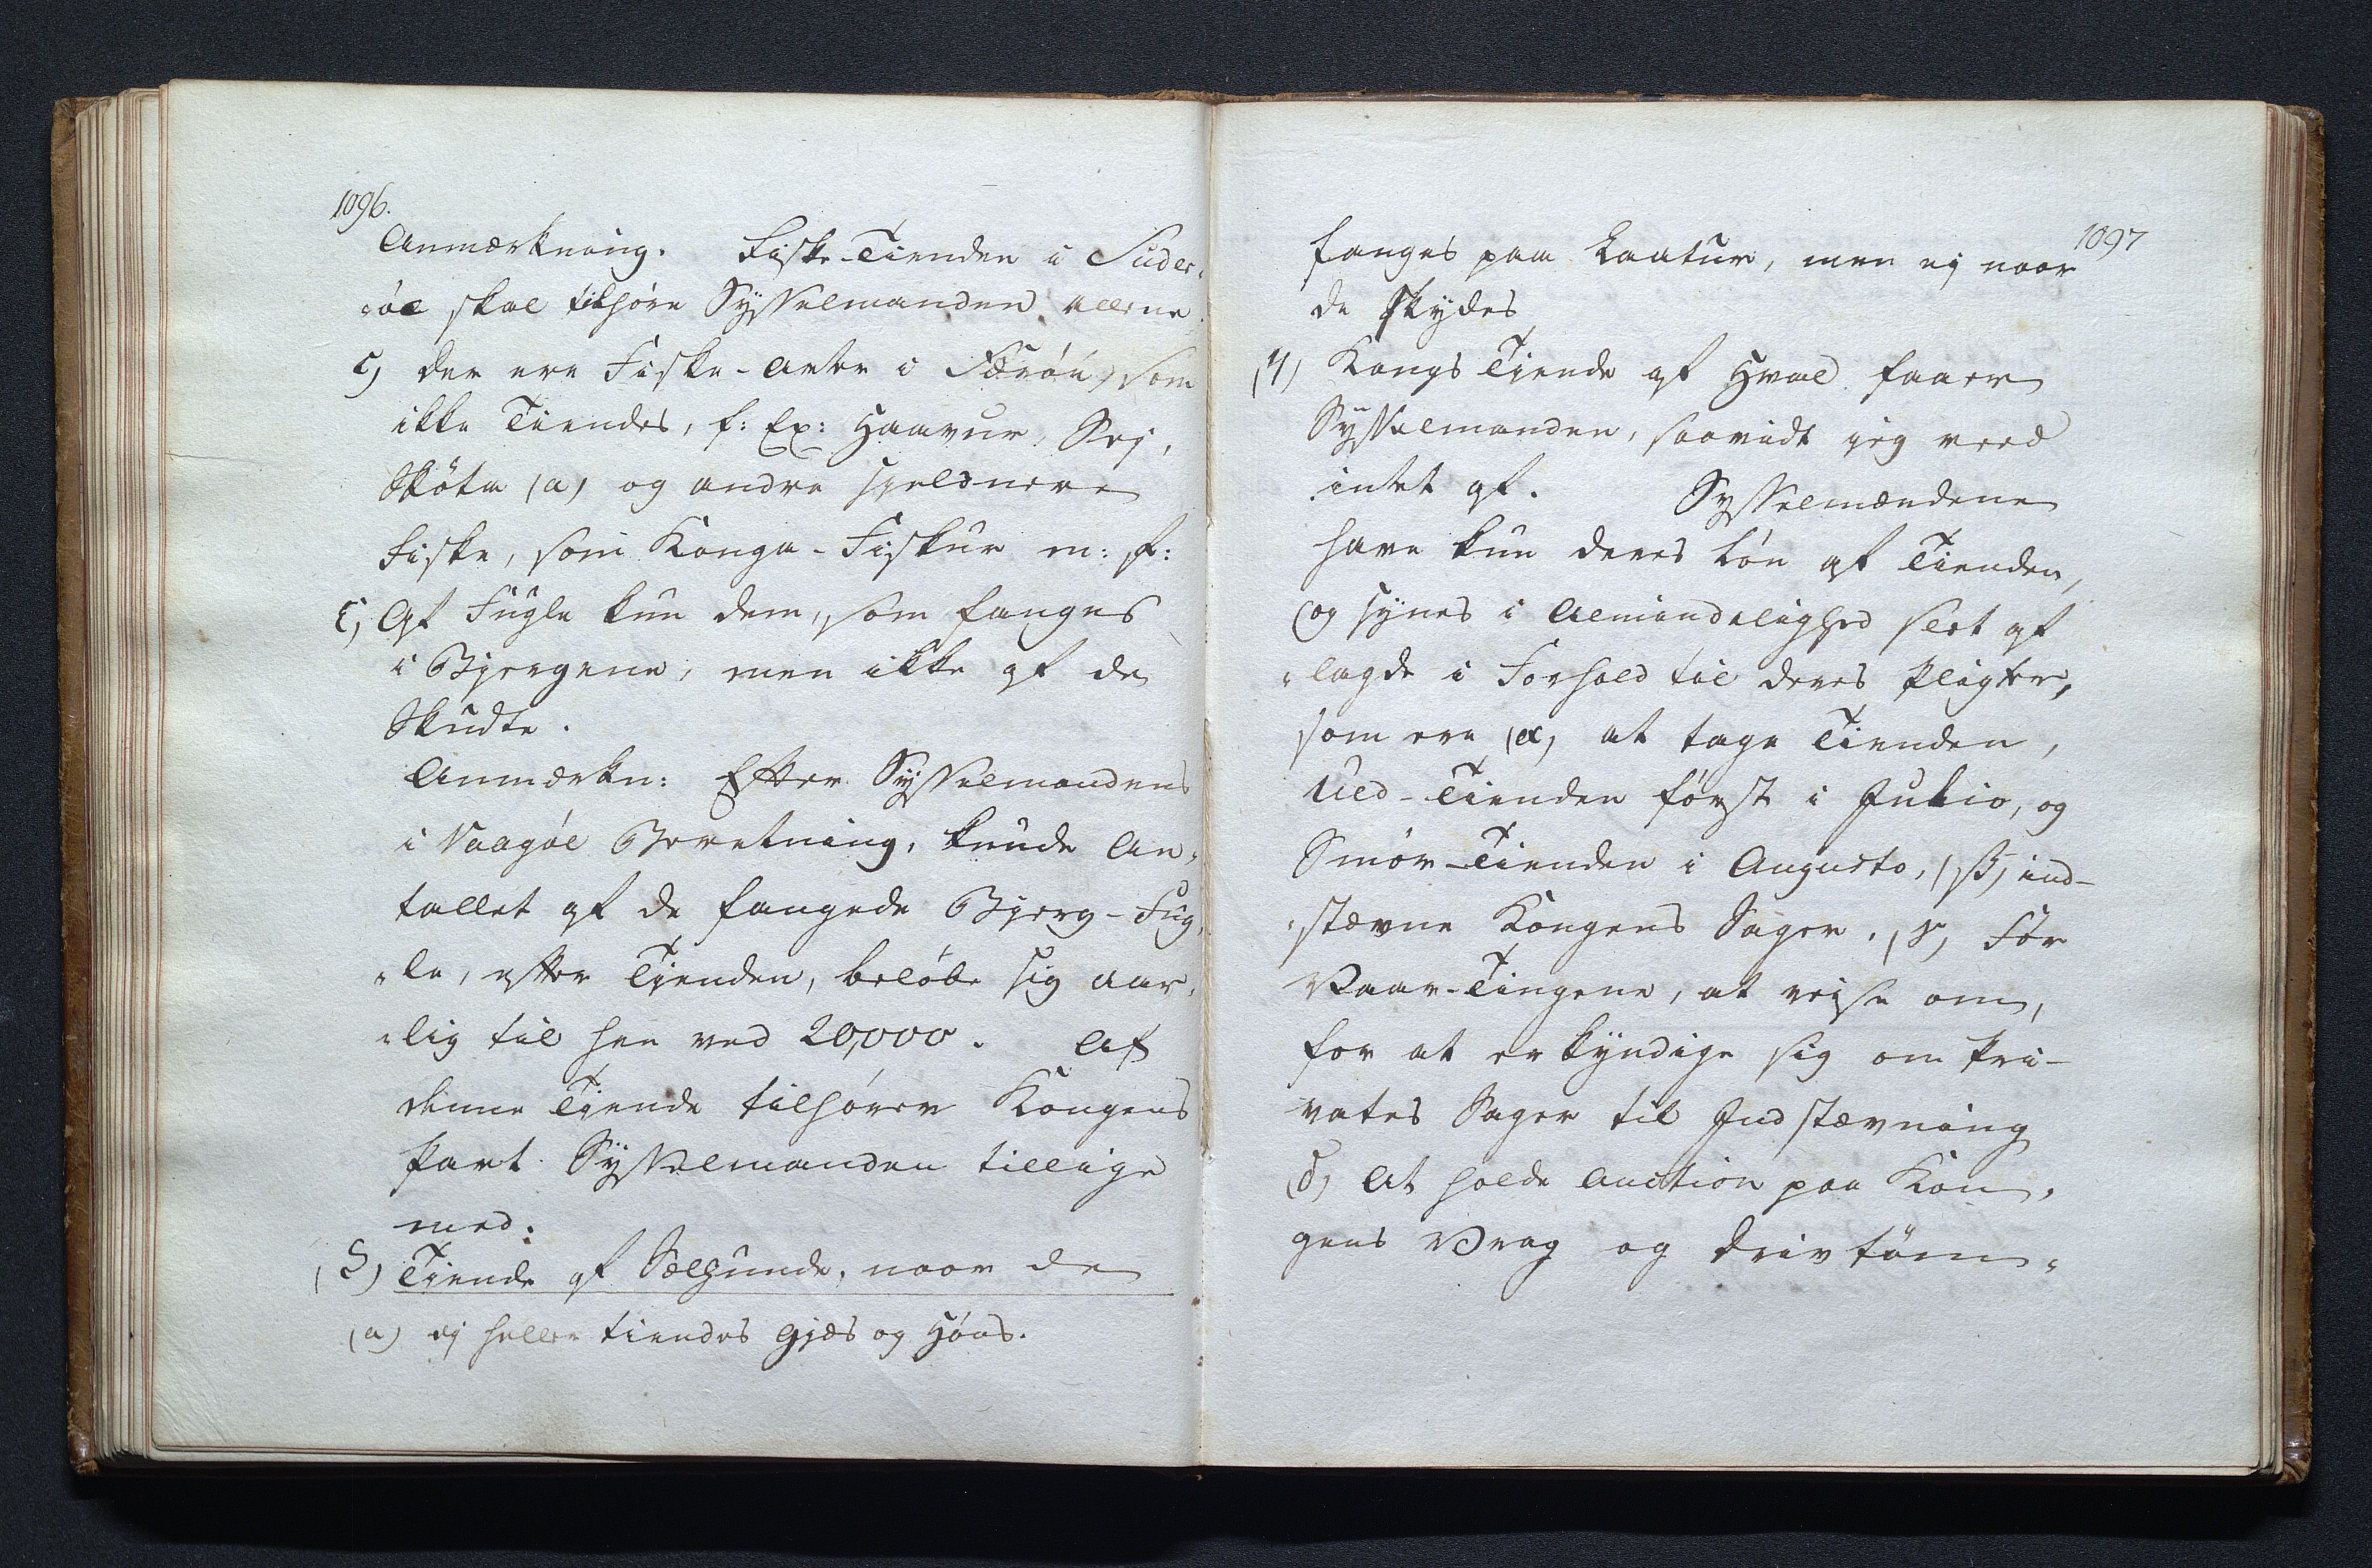 1096.
Anmærkning. Fiske-Tienden i Suder„
„öe skal tilhøre Sysselmanden allene.
ς) der ere Fiske-Arter i Færöe, som
ikke Tiendes, f: Ex: Haavur, Sej,
Sköta (a) og andre sieldnere
Fiske, som Konga-Fiskur m: fl:
ε, Af Fugle kun dem, som fanges
i Bjergene, men ikke af de
Skudte.
Anmærkn: Efter Sysselmandens
i Vaagöe Beretning, kunde An„
tallet af de fangede Bjerg-Fug„
„le, efter Tjenden, beløbe sig aar„
„lig til hen ved 20,000. Af
denne Tjende tilhører Kongens
Part Sysselmanden tillige
med.
(ζ) Tjende af Sælhunde, naar de
(a) ej heller tiendes Gjæs og Høns.
1097
fanges paa Laatur, men ej naar
de skydes
(η) Kongs Tjende af Hval faaer
Sysselmanden, saavidt jeg veed
intet af. Sysselmændene
have kun deres Løn af Tienden,
(og synes i Almindelighed slet af
„lagde i Forhold til deres Pligter,
som ere (α, at tage Tienden,
Uld-Tienden först i Julio, og
Smör-Tienden i Augusto, (β, ind-
„stævne Kongens Sager. (γ, För
Vaar-Tingene, at reise om,
for at erkyndige sig om Pri-
vates Sager til Indstævning
(δ, At holde Auction paa Kon„
gens Vrag og Drivtöm„